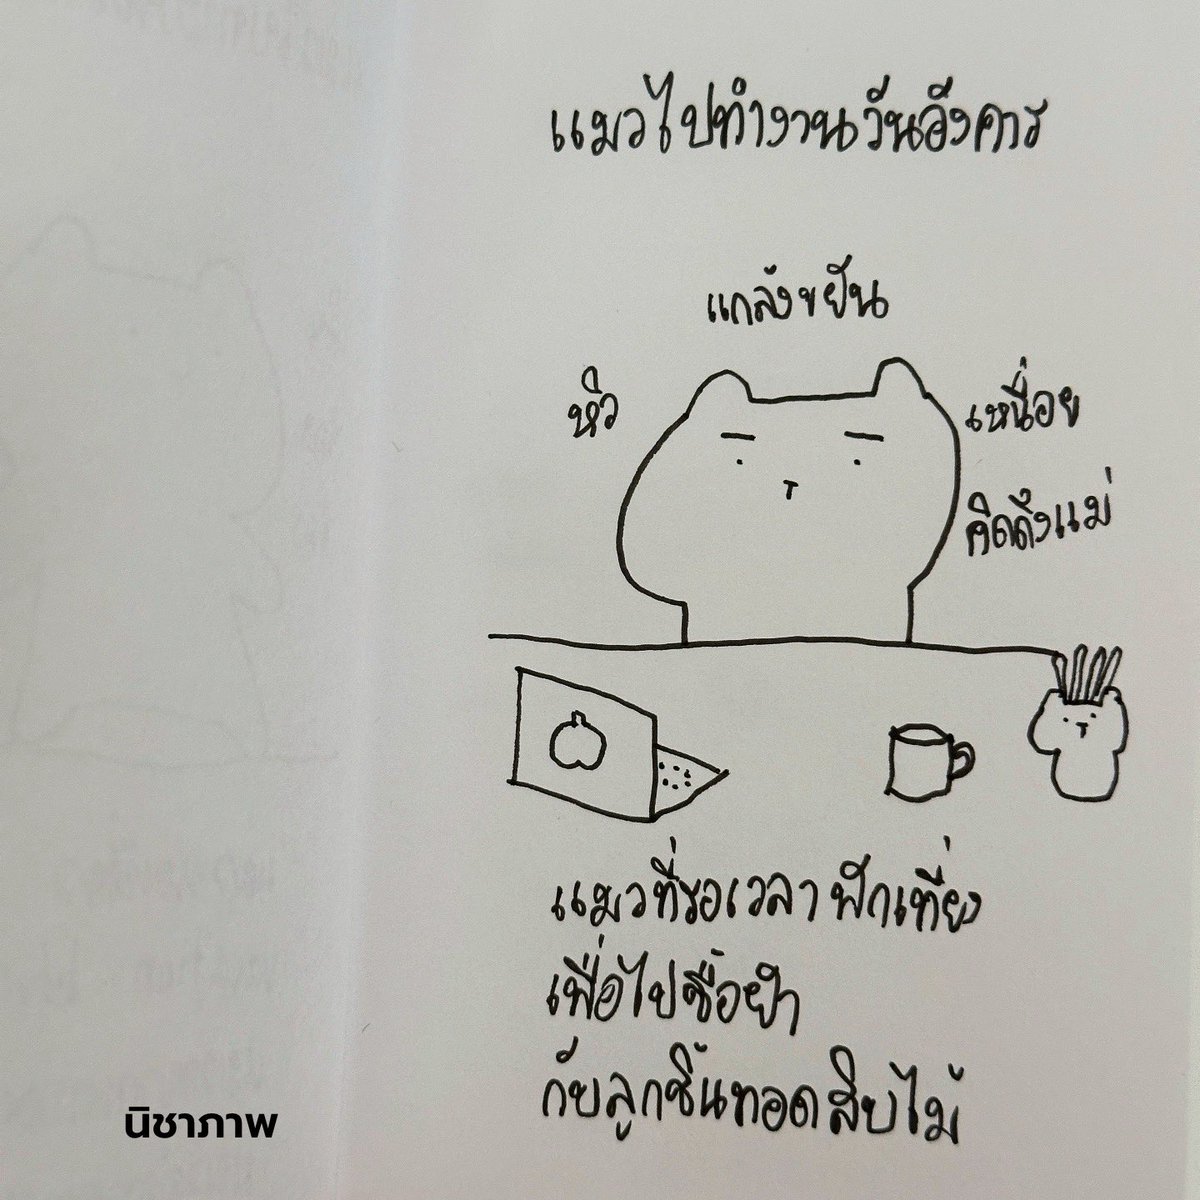 แมวไปทำงานวันอังคาร
แกล้งขยัน
หิว
เหนื่อย
คิดถึงแม่
แมวที่รอเวลาพักเที่ยง
เพื่อไปซื้อยำ
กับลูกชิ้นทอดสิบไม้
นิชาภาพ